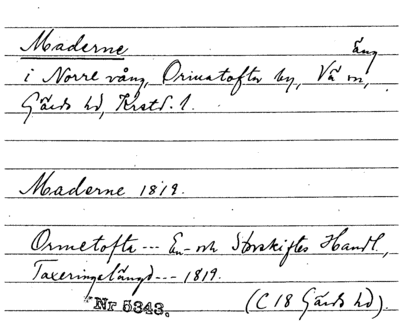 Maderne äng
i Norre vång, Ormatofta by, Vä sn,
Gärds hd, Krstd. l.
Maderne 1819.
Ormetofta --- En- och Storskiftes Handl.,
Taxeringslängd --- 1819.
Nr 5343. (C 18 Gärds hd).